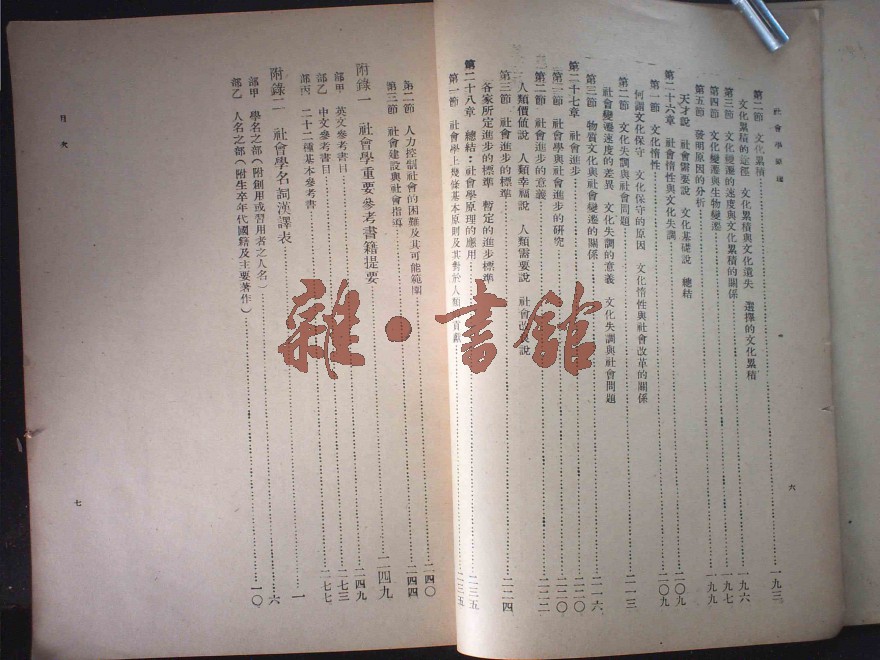 社會學原理
六
第二節 文化累積……一九三
文化累積的途徑 文化累積與文化遺失 選擇的文化累積
第三節 文化變遷的速度與文化累積的關係……一九六
第四節 文化變遷與生物變遷……一九七
第五節 發明原因的分析……一九九
天才說 社會需要說 文化基礎說 總結
第二十六章 社會惰性與文化失調……二〇九
第一節 文化惰性……二〇九
何謂文化保守 文化保守的原因 文化惰性與社會改革的關係
第二節 文化失調與社會問題……二一三
社會變遷速度的差異 文化失調的意義 文化失調與社會問題
第三節 物質文化與社會變遷的關係……二一六
第二十七章 社會進步……二二〇
第一節 社會學與社會進步的研究……二二〇
第二節 社會進步的意義……二二二
第三節 社會進步的標準……二二四
各家所定進步的標準 暫定的進步標準
人類價値說 人類幸福說 人類需要說 社會改良說
第二十八章 總結:社會學原理的應用……二三五
第一節 社會學上幾條基本原則及其對於人類的貢獻……二三五
第二節 人力控制社會的困難及其可能範圍……二四〇
第三節 社會建設與社會指導……二四四
附錄一 社會學重要參考書籍提要……二四九
部甲 英文參考書目……二四九
部乙 中文參考書目……二七三
部丙 二十二種基本參考書……二七七
附錄二 社會學名詞漢譯表……一
部甲 學名之部(附創用或習用者之人名)……六
部乙 人名之部(附生卒年代國籍及主要著作)……一〇
目次
七
雜·書館